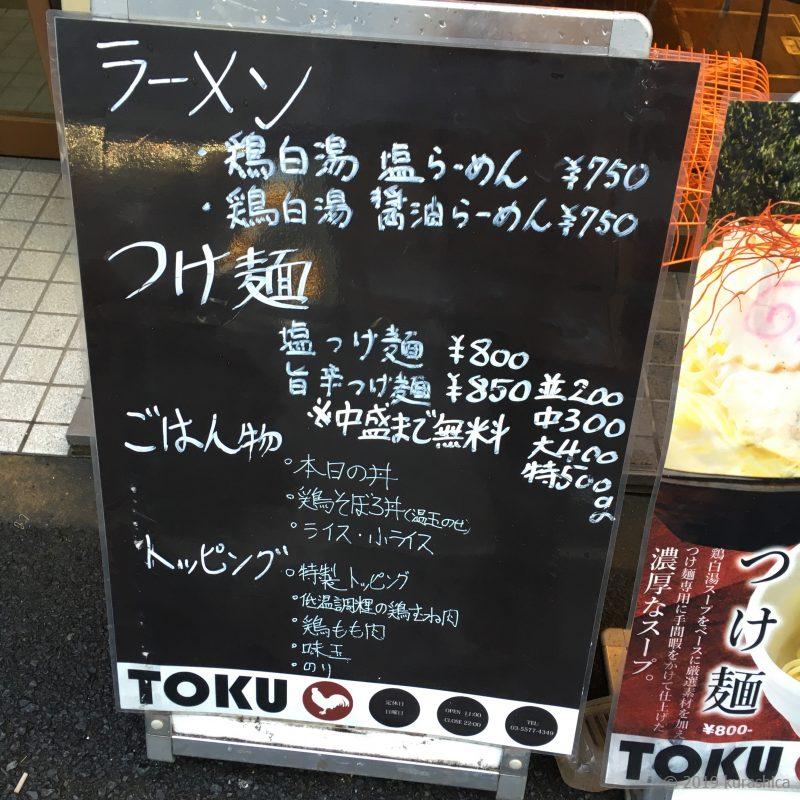 ラーメン
・鶏白湯 塩らーめん ¥750
・鶏白湯 醤油らーめん ¥750
つけ麺
塩つけ麺 ¥800
旨辛つけ麺 ¥850
※中盛まで無料
並200
中300
大400
特500g
ごはん物
・本日の丼
・鶏そぼろ丼(温玉のせ)
・ライス・小ライス
トッピング
・特製トッピング
・低温調理の鶏むね肉
・鶏もも肉
・味玉
・のり
TOKU
定休日
日曜日
OPEN 11:00
CLOSE 22:00
TEL
03-5577-4349
つけ麺
¥800-
鶏白湯スープをベースに厳選素材を加え
つけ麺専用に手間暇をかけて仕上げた
濃厚なスープ。
TOKU
© 2019 kurashica